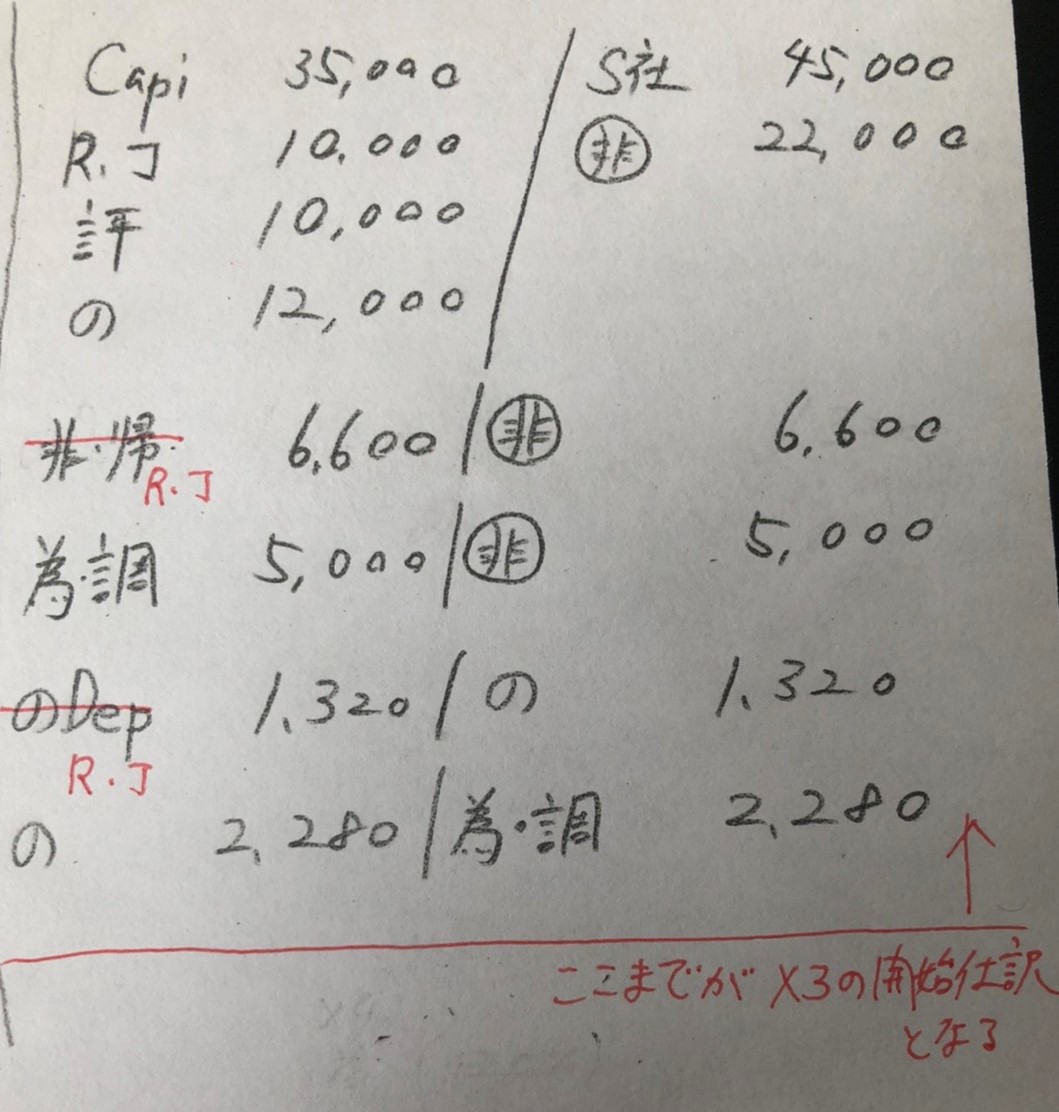 Capi 35,000 / S社 45,000
R.J 10,000 非 22,000
評 10,000
の 12,000
非・帰 R.J 6,600 / 非 6,600
為・調 5,000 / 非 5,000
のDep R.J 1,320 / の 1,320
の 2,280 / 為・調 2,280
ここまでが X3の開始仕訳
となる